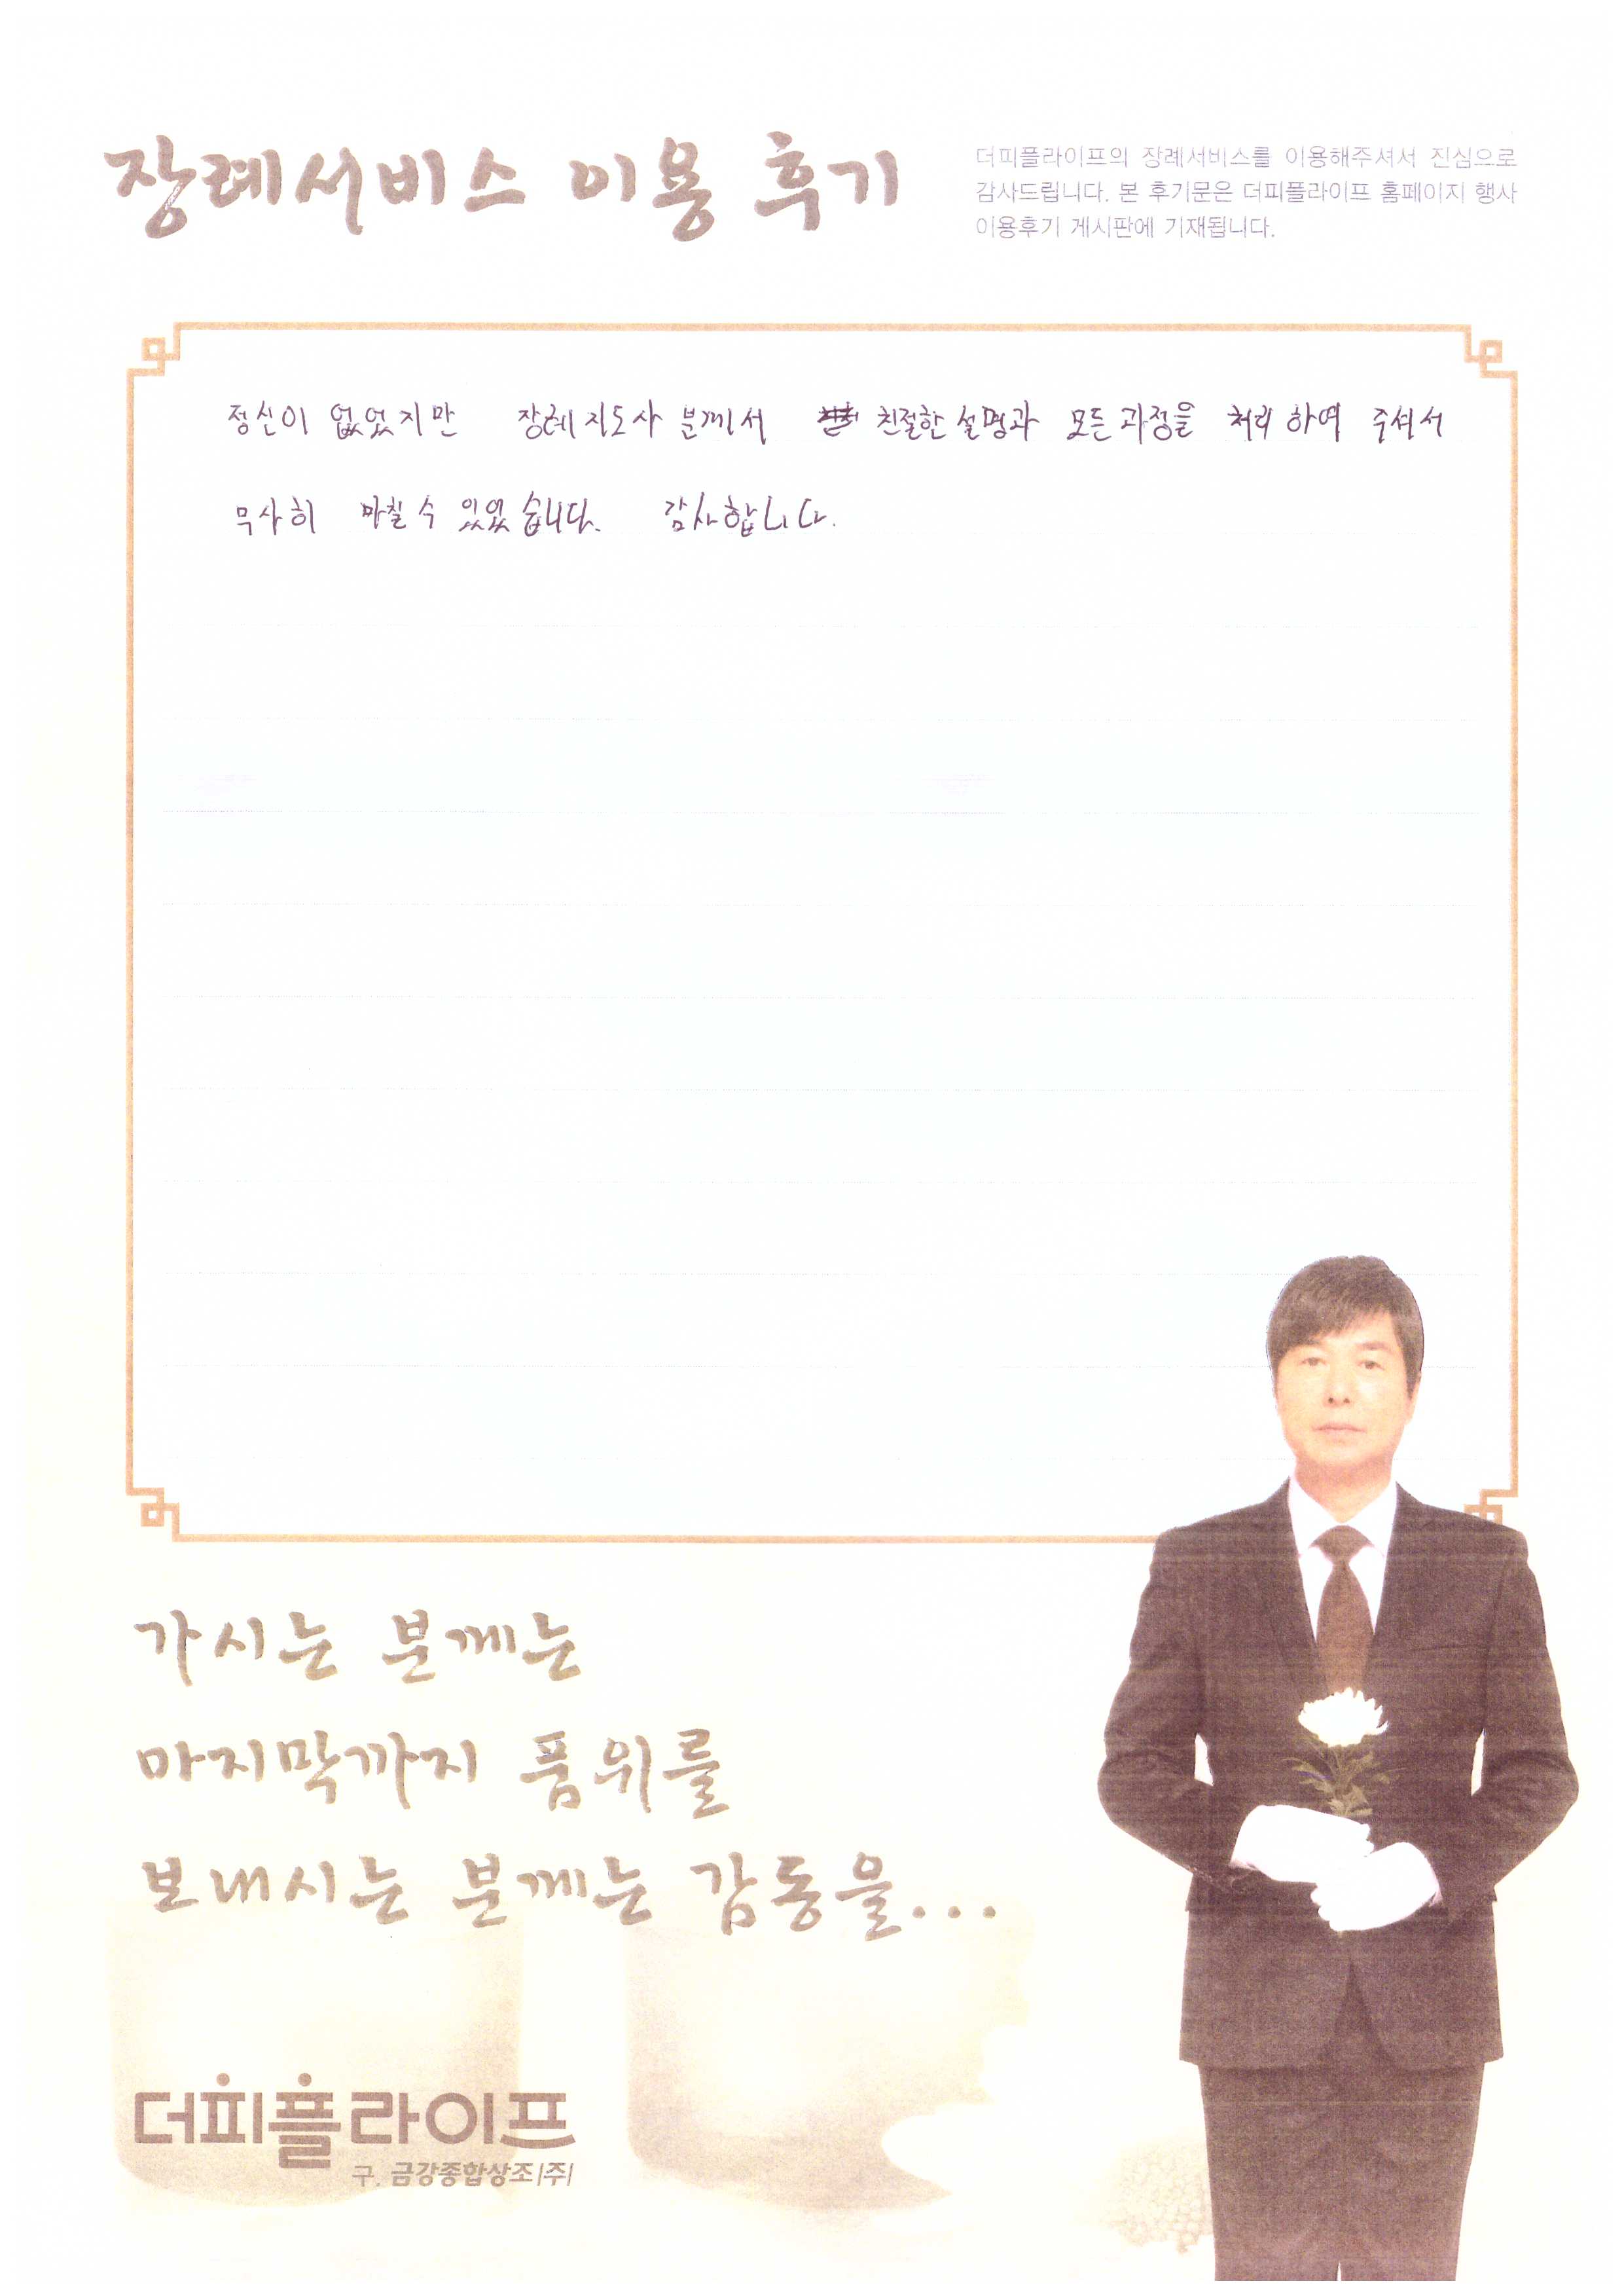 장례서비스 이용 후기
더피플라이프의 장례서비스를 이용해주셔서 진심으로
감사드립니다. 본 후기문은 더피플라이프 홈페이지 행사
이용후기 게시판에 기재됩니다.
정신이 없었지만 장례지도사 분께서 친절한 설명과 모든 과정을 처리 하여 주셔서
무사히 마칠 수 있었습니다. 감사합니다.
가시는 분께는
마지막까지 품위를
보내시는 분께는 감동을...
더피플라이프
구. 금강종합상조|주|